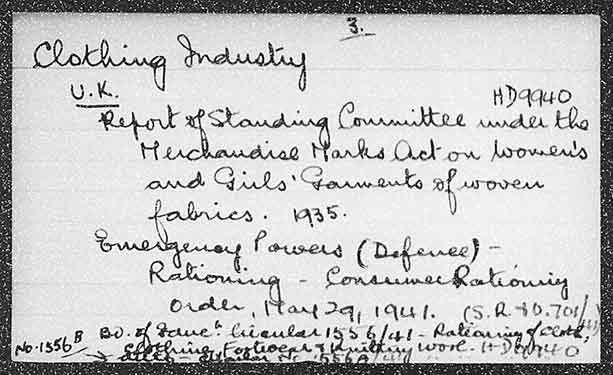 3.
Clothing Industry
U.K. HD9940
Report of Standing Committee under the
Merchandise Marks Act on Women's
and Girls' Garments of woven
fabrics. 1935.
Emergency Powers (Defence) -
Rationing - Consumer Rationing
Order, May 29, 1941. (S.R.&O. 701/
Bd. of Circular 1556/41 - Rationing of Cloth,
No. 1556B Clothing Footwear & Knitting Wool - HD9940